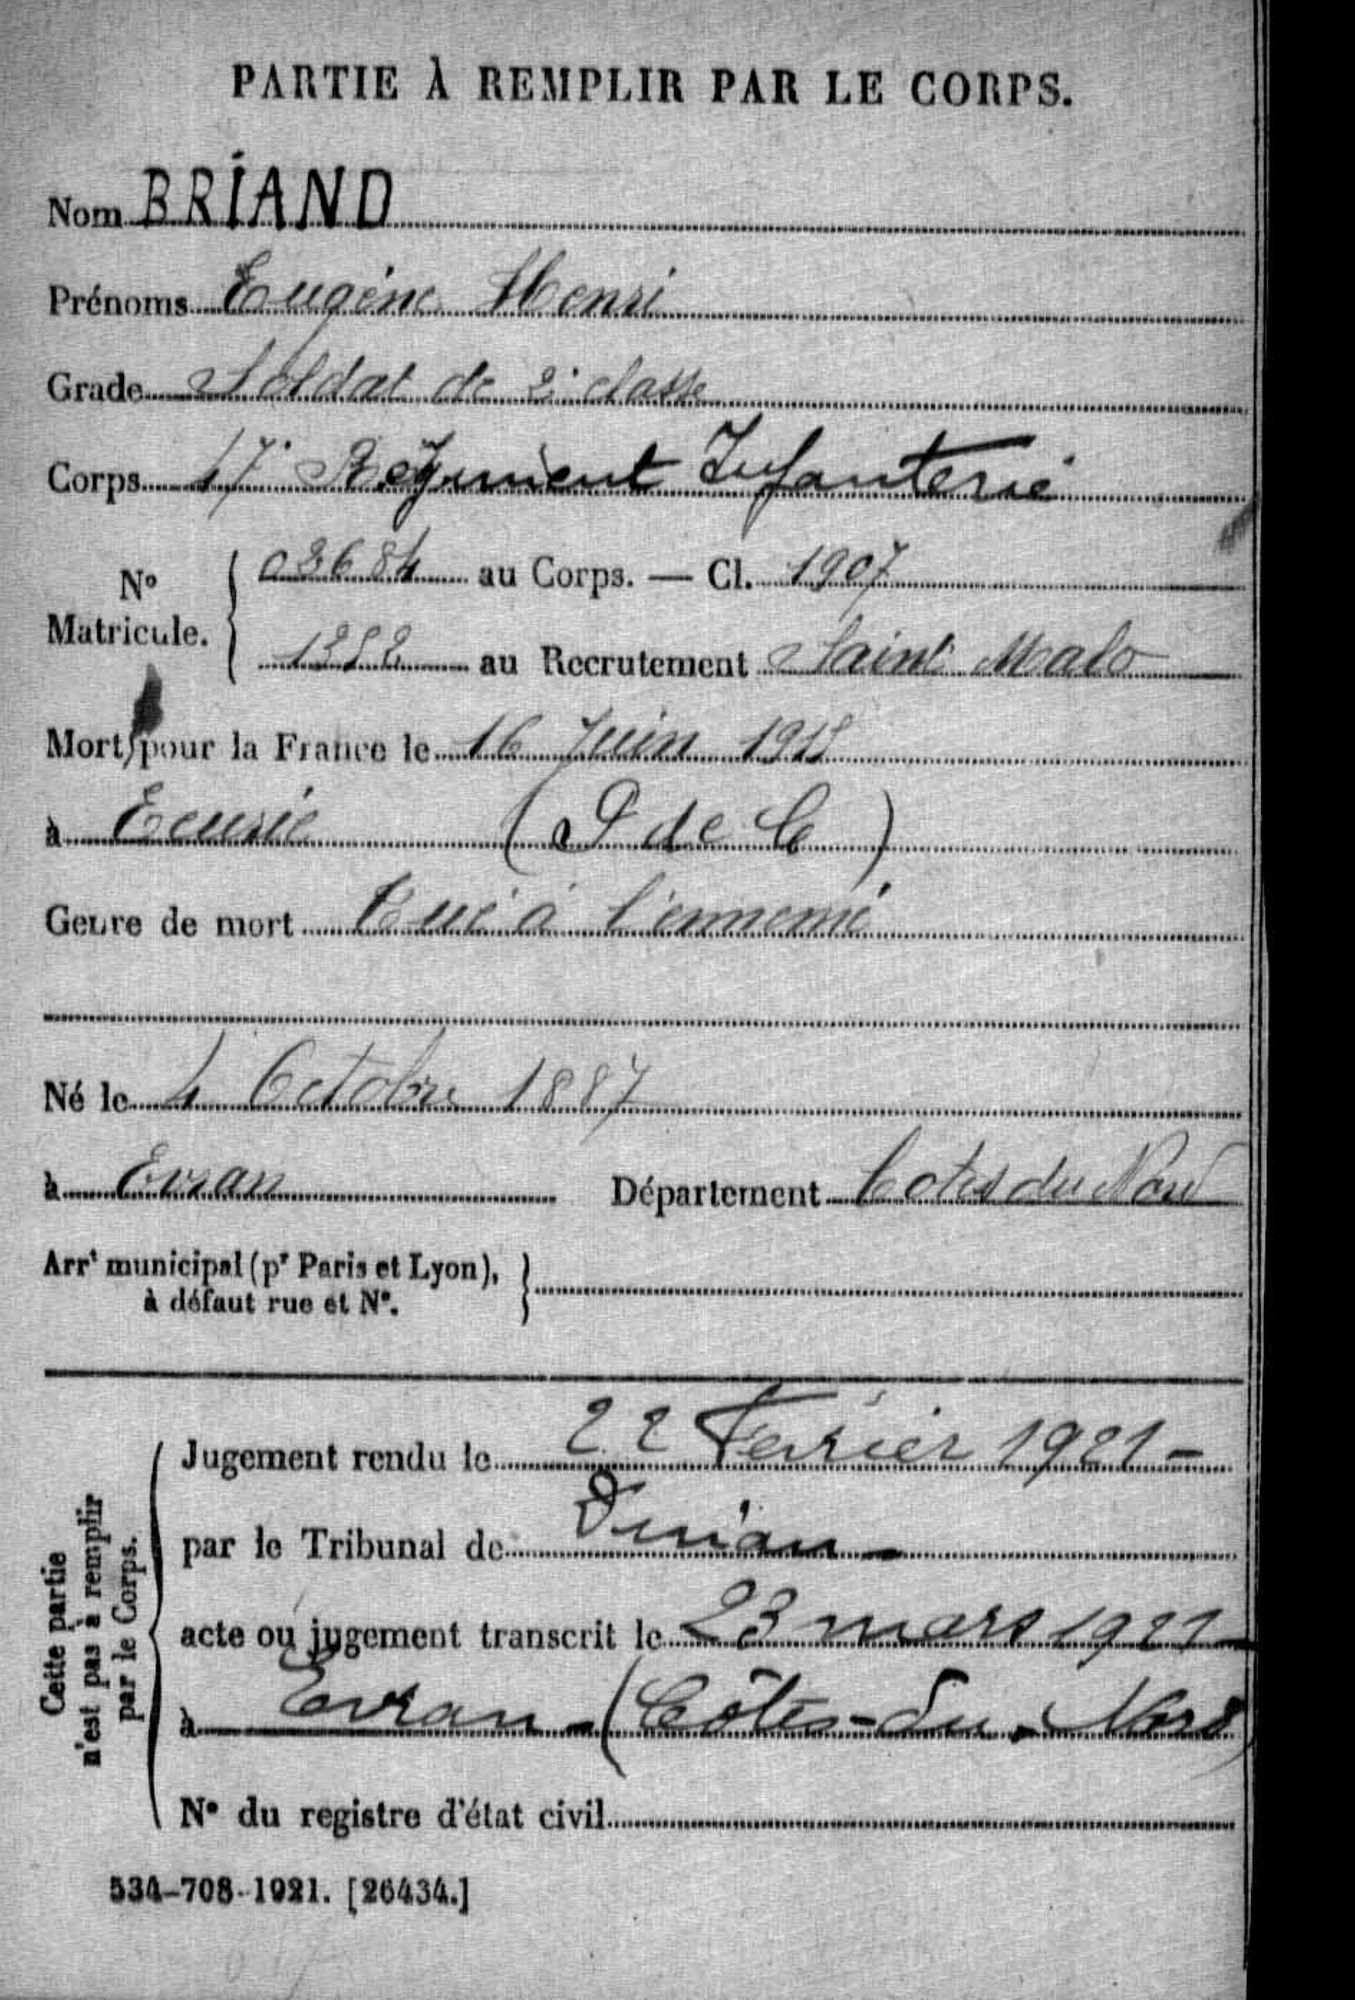 PARTIE À REMPLIR PAR LE CORPS.
Nom BRIAND
Prénoms Eugène Henri
Grade Soldat de 2e classe
Corps 47e Régiment Infanterie
No Matricule. { 03684 au Corps. — Cl. 1907
au Recrutement Saint Malo
Mort pour la France le 16 Juin 1915
à Ecurie (P de C)
Genre de mort Tué à l'ennemi
Né le 4 Octobre 1887
à Evran Département Cotes du Nord
Arrt municipal (pr Paris et Lyon), }
à défaut rue et No.
Cette partie
n'est pas à remplir
par le Corps.
Jugement rendu le 22 Fevrier 1921 -
par le Tribunal de Dinan -
acte ou jugement transcrit le 23 mars 1921 -
à Evran - (Côtes-du-Nord)
No du registre d'état civil
534-708-1921. [26434.]